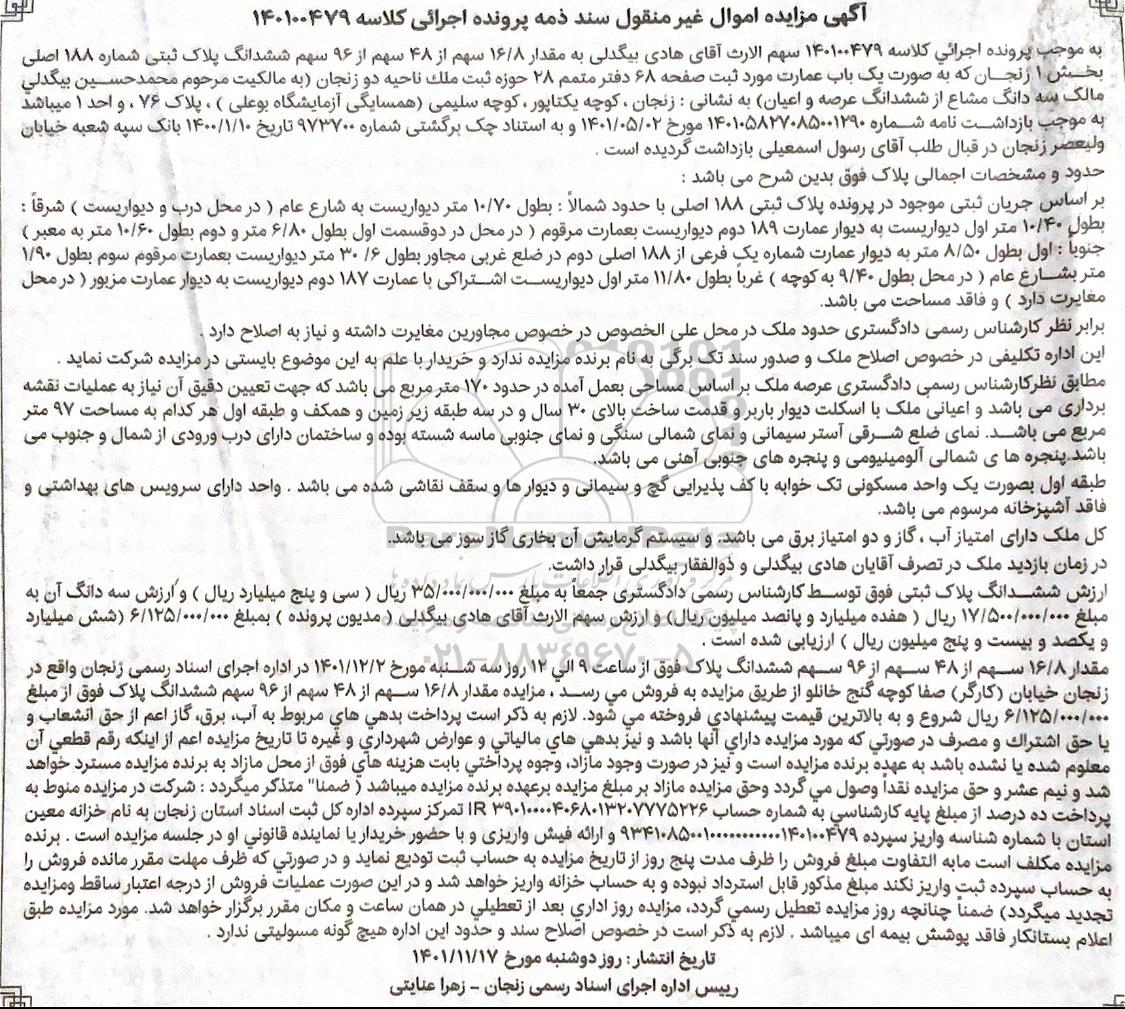 آگهی مزایده اموال غیر منقول سند ذمه پرونده اجرائی کلاسه ۱۴۰۱۰۰۴۷۹
به موجب پرونده اجرائي كلاسه ۱۴۰۱۰۰۴۷۹ سهم الارث آقای هادی بیگدلی به مقدار ۱۶/۸ سهم از ۴۸ سهم از ۹۶ سهم ششدانگ پلاک ثبتی شماره ۱۸۸ اصلی
بخـش ۱ زنجـان که به صورت یک باب عمارت مورد ثبت صفحه ۶۸ دفتر متمم ۲۸ حوزه ثبت ملك ناحیه دو زنجان (به مالکیت مرحوم محمدحسـین بیگدلي
مالک سه دانگ مشاع از ششدانگ عرصه و اعیان) به نشانی : زنجان ، کوچه یکتاپور ، کوچه سلیمی (همسایگی آزمایشگاه بوعلی ) ، پلاک ۷۶ ، و احد ۱ میباشد
به موجب بازداشـت نامه شـماره ۱۴۰۱۰۵۸۲۷۰۸۵۰۰۱۲۹۰ مورخ ۱۴۰۱/۰۵/۰۲ و به استناد چک برگشتی شماره ۹۷۳۷۰۰ تاریخ ۱۴۰۰/۱/۱۰ بانک سپه شعبه خیابان
ولیعصر زنجان در قبال طلب آقای رسول اسمعیلی بازداشت گردیده است .
حدود و مشخصات اجمالی پلاک فوق بدین شرح می باشد :
بر اساس جریان ثبتی موجود در پرونده پلاک ثبتی ۱۸۸ اصلی با حدود شمالاً : بطول ۱۰/۷۰ متر دیواریست به شارع عام ( در محل درب و دیواریست ) شرقاً :
بطول ۱۰/۴۰ متر اول دیواریست به دیوار عمارت ۱۸۹ دوم دیواریست بعمارت مرقوم ( در محل در دوقسمت اول بطول ۶/۸۰ متر و دوم بطول ۱۰/۶۰ متر به معبر )
جنوباً : اول بطول ۸/۵۰ متر به دیوار عمارت شماره یک فرعی از ۱۸۸ اصلی دوم در ضلع غربی مجاور بطول ۶/ ۳۰ متر دیواریست بعمارت مرقوم سوم بطول ۱/۹۰
متر بشـارع عام ( در محل بطول ۹/۴۰ به کوچه ) غرباً بطول ۱۱/۸۰ متر اول دیواریسـت اشـتراکی با عمارت ۱۸۷ دوم دیواریست به دیوار عمارت مزبور ( در محل
مغایرت دارد ) و فاقد مساحت می باشد.
برابر نظر کارشناس رسمی دادگستری حدود ملک در محل علی الخصوص در خصوص مجاورین مغایرت داشته و نیاز به اصلاح دارد .
این اداره تکلیفی در خصوص اصلاح ملک و صدور سند تک برگی به نام برنده مزایده ندارد و خریدار با علم به این موضوع بایستی در مزایده شرکت نماید .
مطابق نظرکارشناس رسمی دادگستری عرصه ملک بر اساس مساحی بعمل آمده در حدود ۱۷۰ متر مربع می باشد که جهت تعیین دقیق آن نیاز به عملیات نقشه
برداری می باشد و اعیانی ملک با اسکلت دیوار باربر و قدمت ساخت بالای ۳۰ سال و در سه طبقه زیر زمین و همکف و طبقه اول هر کدام به مساحت ۹۷ متر
مربع می باشـد. نمای ضلع شـرقی آستر سیمانی و نمای شمالی سنگی و نمای جنوبی ماسه شسته بوده و ساختمان دارای درب ورودی از شمال و جنوب می
باشد.پنجره ها ی شمالی آلومینیومی و پنجره های جنوبی آهنی می باشد.
طبقه اول بصورت یک واحد مسکونی تک خوابه با کف پذیرایی گچ و سیمانی و دیوار ها و سقف نقاشی شده می باشد . واحد دارای سرویس های بهداشتی و
فاقد آشپزخانه مرسوم می باشد.
کل ملک دارای امتیاز آب ، گاز و دو امتیاز برق می باشد. و سیستم گرمایش آن بخاری گاز سوز می باشد.
در زمان بازدید ملک در تصرف آقایان هادی بیگدلی و ذوالفقار بیگدلی قرار داشت.
ارزش ششـدانگ پلاک ثبتی فوق توسط کارشناس رسمی دادگستری جمعاً به مبلغ ۳۵/۰۰۰/۰۰۰/۰۰۰ ریال ( سی و پنج میلیارد ریال ) و ارزش سه دانگ آن به
مبلغ ۱۷/۵۰۰/۰۰۰/۰۰۰ ریال ( هفده میلیارد و پانصد میلیون ریال) و ارزش سهم الارث آقای هادی بیگدلی ( مدیون پرونده ) بمبلغ ۶/۱۲۵/۰۰۰/۰۰۰ (شش میلیارد
و یکصد و بیست و پنج میلیون ریال ) ارزیابی شده است .
مقدار ۱۶/۸ سـهم از ۴۸ سـهم از ۹۶ سـهم ششدانگ پلاک فوق از ساعت ۹ الي ۱۲ روز سه شـنبه مورخ ۱۴۰۱/۱۲/۲ در اداره اجرای اسناد رسمی زنجان واقع در
زنجان خیابان (کارگر) صفا کوچه گنج خانلو از طریق مزایده به فروش مي رسد ، مزایده مقدار ۱۶/۸ سـهم از ۴۸ سهم از ۹۶ سهم ششدانگ پلاک فوق از مبلغ
۶/۱۲۵/۰۰۰/۰۰۰ ریال شروع و به بالاترین قیمت پیشنهادي فروخته مي شود. لازم به ذکر است پرداخت بدهي هاي مربوط به آب، برق، گاز اعم از حق انشعاب و
یا حق اشتراك و مصرف در صورتي که مورد مزایده داراي آنها باشد و نیز بدهي هاي مالیاتي و عوارض شهرداري و غیره تا تاریخ مزایده اعم از اینکه رقم قطعي آن
معلوم شده یا نشده باشد به عهده برنده مزایده است و نیز در صورت وجود مازاد، وجوه پرداختي بابت هزینه هاي فوق از محل مازاد به برنده مزایده مسترد خواهد
شد و نیم عشر و حق مزایده نقداً وصول مي گردد وحق مزایده مازاد بر مبلغ مزایده برعهده برنده مزایده میباشد ( ضمنا" متذکر میگردد : شرکت در مزایده منوط به
پرداخت ده درصد از مبلغ پایه کارشناسي به شماره حساب IR ۳۹۰۱۰۰۰۰۴۰۶۸۰۱۳۲۰۷۷۷۵۲۲۶ تمرکز سپرده اداره کل ثبت اسناد استان زنجان به نام خزانه معین
استان با شماره شناسه واریز سپرده ۹۳۴۱۰۸۵۰۰۱۰۰۰۰۰۰۰۰۰۰۰۰۱۴۰۱۰۰۴۷۹ و ارائه فیش واریزی و با حضور خریدار یا نماینده قانوني او در جلسه مزایده است . برنده
مزایده مکلف است مابه التفاوت مبلغ فروش را ظرف مدت پنج روز از تاریخ مزایده به حساب ثبت تودیع نماید و در صورتي که ظرف مهلت مقرر مانده فروش را
به حساب سپرده ثبت واریز نکند مبلغ مذکور قابل استرداد نبوده و به حساب خزانه واریز خواهد شد و در این صورت عملیات فروش از درجه اعتبار ساقط ومزایده
تجدید میگردد) ضمناً چنانچه روز مزایده تعطیل رسمي گردد، مزایده روز اداري بعد از تعطیلي در همان ساعت و مکان مقرر برگزار خواهد شد. مورد مزایده طبق
اعلام بستانکار فاقد پوشش بیمه ای میباشد . لازم به ذکر است در خصوص اصلاح سند و حدود این اداره هیچ گونه مسولیتی ندارد .
تاریخ انتشار : روز دوشنبه مورخ ۱۴۰۱/۱۱/۱۷
رییس اداره اجرای اسناد رسمی زنجان - زهرا عنایتی
ParsNamadData
۰۲۱-۸۸۳۴۹۶۷۰-۵